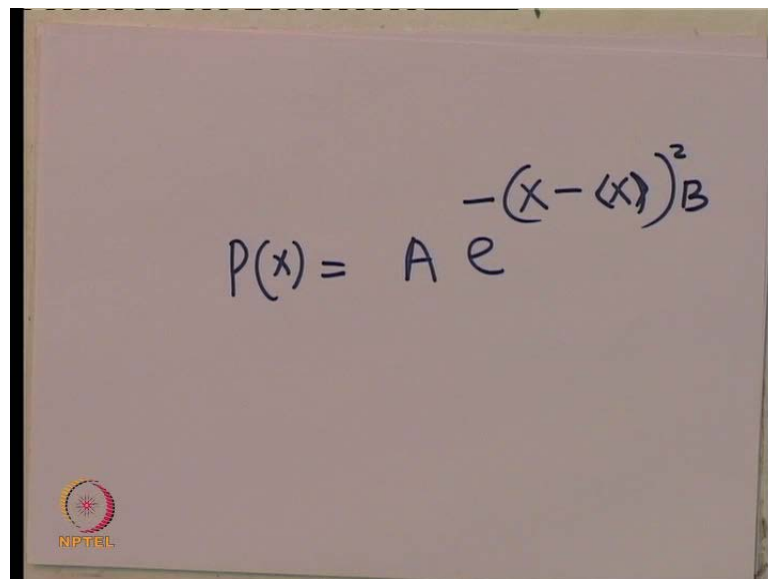 P(x) = A e^{-(x - ⟨x⟩)^2 B}
NPTEL